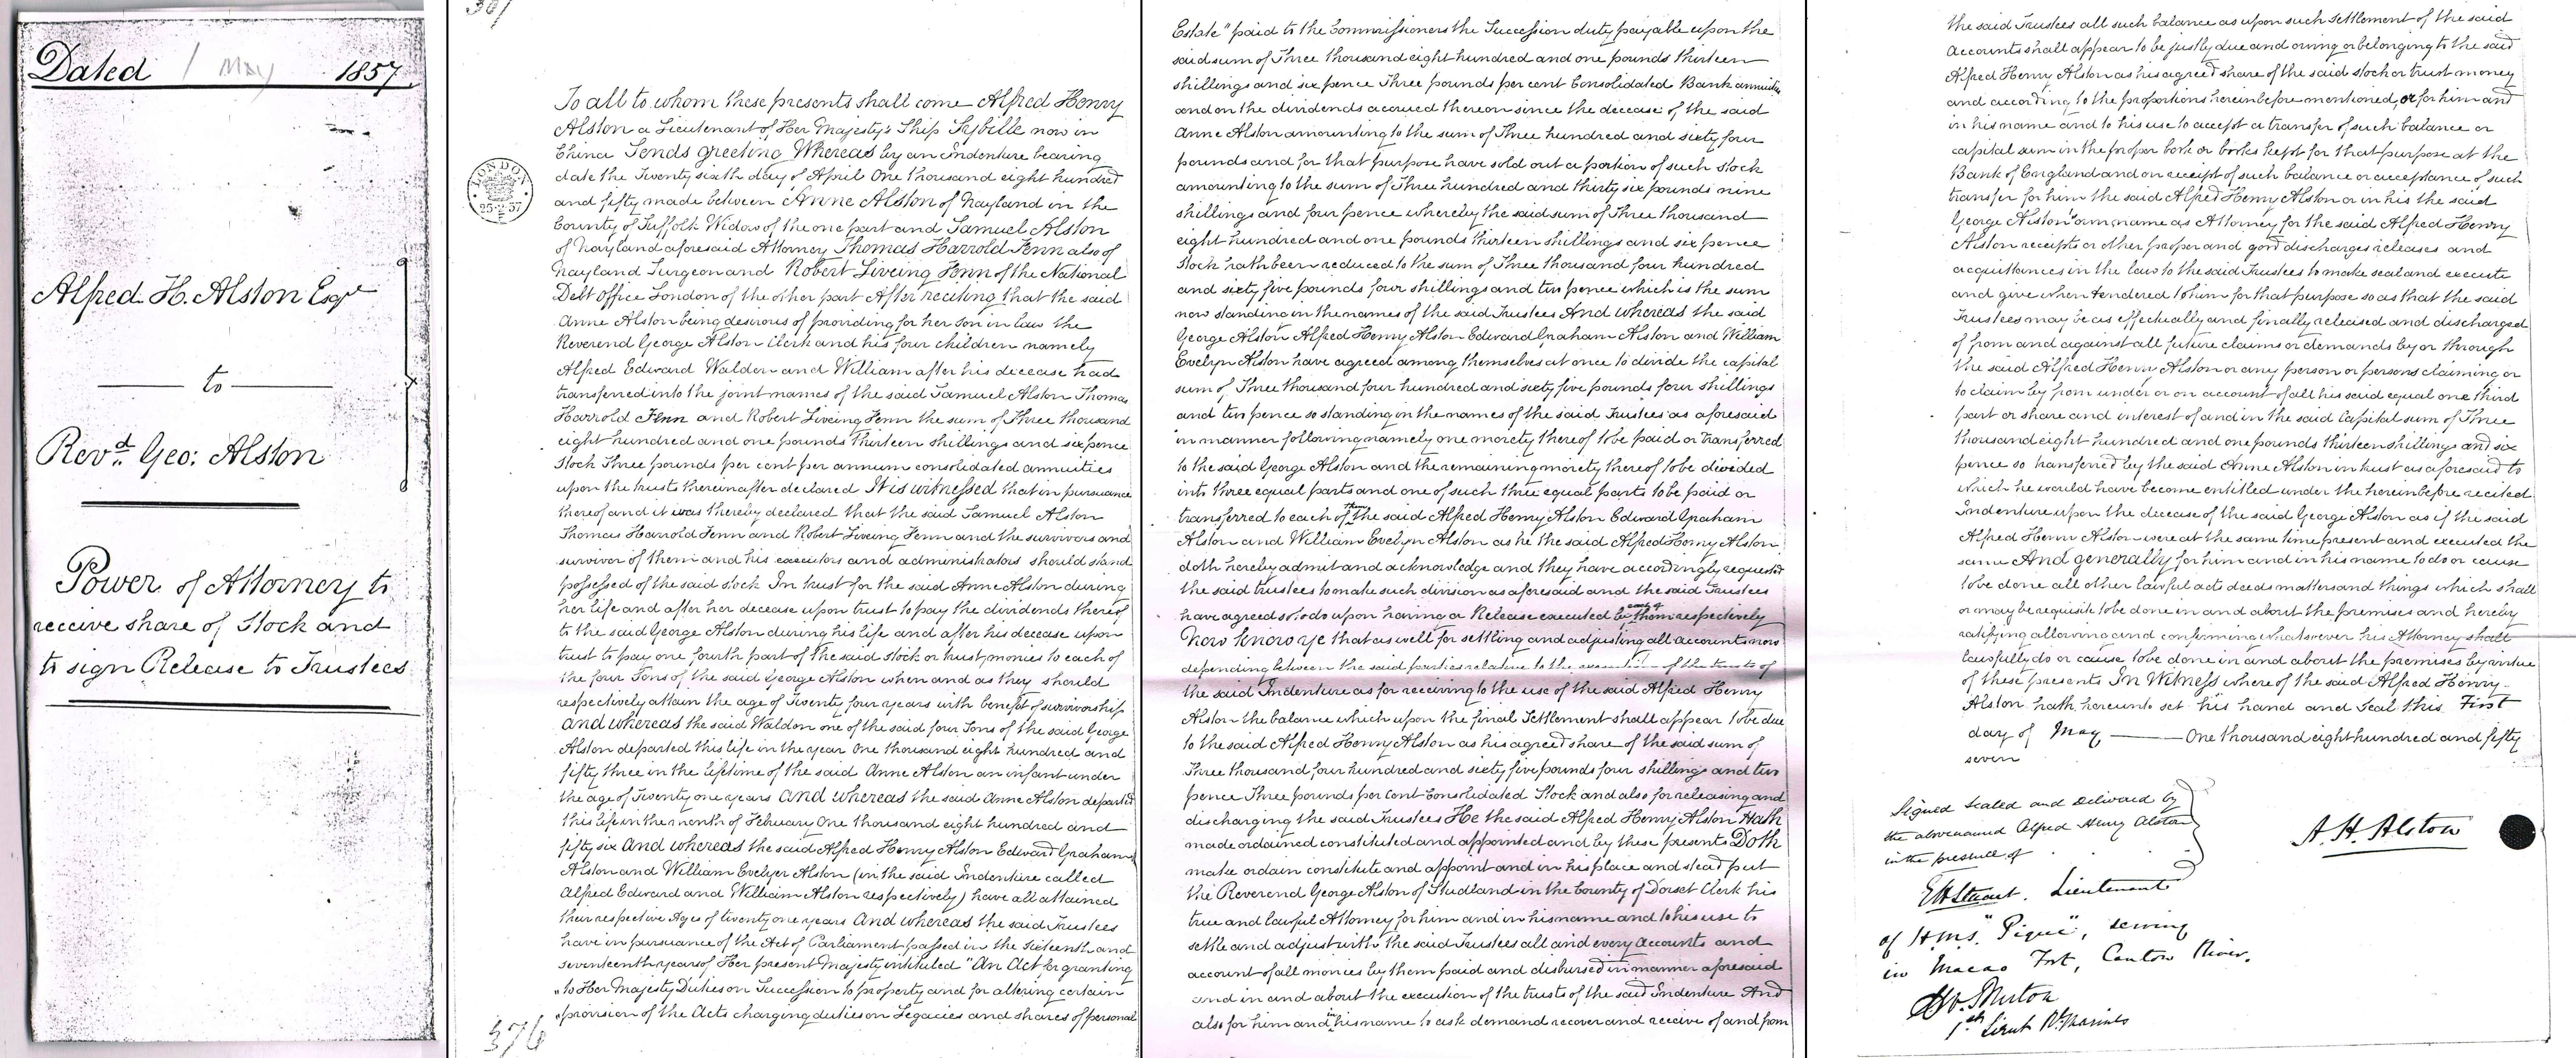 Dated 1 May 1857
Alfred H. Alston Esqre
to
Revd. Geo: Alston
Power of Attorney to
receive share of Stock and
to sign Release to Trustees
LONDON
376
To all to whom these presents shall come Alfred Henry
Alston a Lieutenant of Her Majesty's Ship Sybille now in
China Sends greeting Whereas by an Indenture bearing
date the Twenty sixth day of April One thousand eight hundred
and fifty made between Anne Alston of Nayland in the
County of Suffolk Widow of the one part and Samuel Alston
of Nayland aforesaid Attorney Thomas Harrold Fenn also of
Nayland Surgeon and Robert Liveing Fenn of the National
Debt Office London of the other part After reciting that the said
Anne Alston being desirous of providing for her son in law the
Reverend George Alston Clerk and his four children namely
Alfred Edward Waldon and William after his decease had
transferred into the joint names of the said Samuel Alston Thomas
Harrold Fenn and Robert Liveing Fenn the sum of Three thousand
eight hundred and one pounds thirteen shillings and six pence
Stock Three pounds per cent per annum consolidated annuities
upon the trusts thereinafter declared It is witnessed that in pursuance
thereof and it was thereby declared that the said Samuel Alston
Thomas Harrold Fenn and Robert Liveing Fenn and the survivors and
survivor of them and his executors and administrators should stand
possessed of the said stock In trust for the said Anne Alston during
her life and after her decease upon trust to pay the dividends thereof
to the said George Alston during his life and after his decease upon
trust to pay one fourth part of the said stock or trust monies to each of
the four Sons of the said George Alston when and as they should
respectively attain the age of Twenty four years with benefit of survivorship
And whereas the said Waldon one of the said four Sons of the said George
Alston departed this life in the year One thousand eight hundred and
fifty three in the lifetime of the said Anne Alston an infant under
the age of Twenty one years And whereas the said Anne Alston departed
this life in the month of February One thousand eight hundred and
fifty six And whereas the said Alfred Henry Alston Edward Graham
Alston and William Evelyn Alston (in the said Indenture called
Alfred Edward and William Alston respectively) have all attained
their respective Ages of twenty one years And whereas the said Trustees
have in pursuance of the Act of Parliament passed in the sixteenth and
seventeenth years of Her present Majesty intituled "An Act for granting
"to Her Majesty Duties on Succession to property and for altering certain
"provision of the Acts charging duties on Legacies and shares of personal
Estate" paid to the Commissioners the Succession duty payable upon the
said sum of Three thousand eight hundred and one pounds thirteen
shillings and six pence Three pounds per cent Consolidated Bank annuities
and on the dividends accrued thereon since the decease of the said
Anne Alston amounting to the sum of Three hundred and sixty four
pounds and for that purpose have sold out a portion of such stock
amounting to the sum of Three hundred and thirty six pounds nine
shillings and four pence whereby the said sum of Three thousand
eight hundred and one pounds thirteen shillings and six pence
Stock hath been reduced to the sum of Three thousand four hundred
and sixty five pounds four shillings and two pence which is the sum
now standing in the names of the said Trustees And whereas the said
George Alston Alfred Henry Alston Edward Graham Alston and William
Evelyn Alston have agreed among themselves at once to divide the capital
sum of Three thousand four hundred and sixty five pounds four shillings
and two pence so standing in the names of the said Trustees as aforesaid
in manner following namely one moiety thereof to be paid or transferred
to the said George Alston and the remaining moiety thereof to be divided
into three equal parts and one of such three equal parts to be paid or
transferred to each of them the said Alfred Henry Alston Edward Graham
Alston and William Evelyn Alston as he the said Alfred Henry Alston
doth hereby admit and acknowledge and they have accordingly requested
the said trustees to make such division as aforesaid and the said Trustees
have agreed so to do upon having a Release executed by each of them respectively
Now know ye that as well for settling and adjusting all accounts now
depending between the said parties relative to the execution of the trusts of
the said Indenture as for receiving to the use of the said Alfred Henry
Alston the balance which upon the final Settlement shall appear to be due
to the said Alfred Henry Alston as his agreed share of the said sum of
Three thousand four hundred and sixty five pounds four shillings and two
pence Three pounds per Cent Consolidated Stock and also for releasing and
discharging the said Trustees He the said Alfred Henry Alston Hath
made ordained constituted and appointed and by these presents Doth
make ordain constitute and appoint and in his place and stead put
the Reverend George Alston of Studland in the County of Dorset Clerk his
true and lawful Attorney for him and in his name and to his use to
settle and adjust with the said Trustees all and every Accounts and
account of all monies by them paid and disbursed in manner aforesaid
and in and about the execution of the trusts of the said Indenture And
also for him and in his name to ask demand recover and receive of and from
the said Trustees all such balance as upon such Settlement of the said
Accounts shall appear to be justly due and owing or belonging to the said
Alfred Henry Alston as his agreed share of the said stock or trust money
and according to the proportions hereinbefore mentioned, or for him and
in his name and to his use to accept a transfer of such balance or
capital sum in the proper book or books kept for that purpose at the
Bank of England and on receipt of such balance or acceptance of such
transfer for him the said Alfred Henry Alston or in his the said
George Alston's own name as Attorney for the said Alfred Henry
Alston receipts or other proper and good discharges releases and
acquittances in the law to the said Trustees to make seal and execute
and give when tendered to him for that purpose so as that the said
Trustees may be as effectually and finally released and discharged
of from and against all future claims or demands by or through
the said Alfred Henry Alston or any person or persons claiming or
to claim by from under or on account of all his said equal one third
part or share and interest of and in the said Capital sum of Three
thousand eight hundred and one pounds thirteen shillings and six
pence so transferred by the said Anne Alston in trust as aforesaid to
which he would have become entitled under the hereinbefore recited
Indenture upon the decease of the said George Alston as if the said
Alfred Henry Alston were at the same time present and executed the
same And generally for him and in his name to do or cause
to be done all other lawful acts deeds matters and things which shall
or may be requisite to be done in and about the premises and hereby
ratifying allowing and confirming whatsoever his Attorney shall
lawfully do or cause to be done in and about the premises by virtue
of these presents In Witness whereof the said Alfred Henry
Alston hath hereunto set his hand and Seal this First
day of May One thousand eight hundred and fifty
seven
Signed Sealed and Delivered by
the abovenamed Alfred Henry Alston
in the presence of
A. H. Alston
Lieutenant
of H.M.S. "Pique", serving
in Macao Fort, Canton River.
1st Lieut Rl. Marines